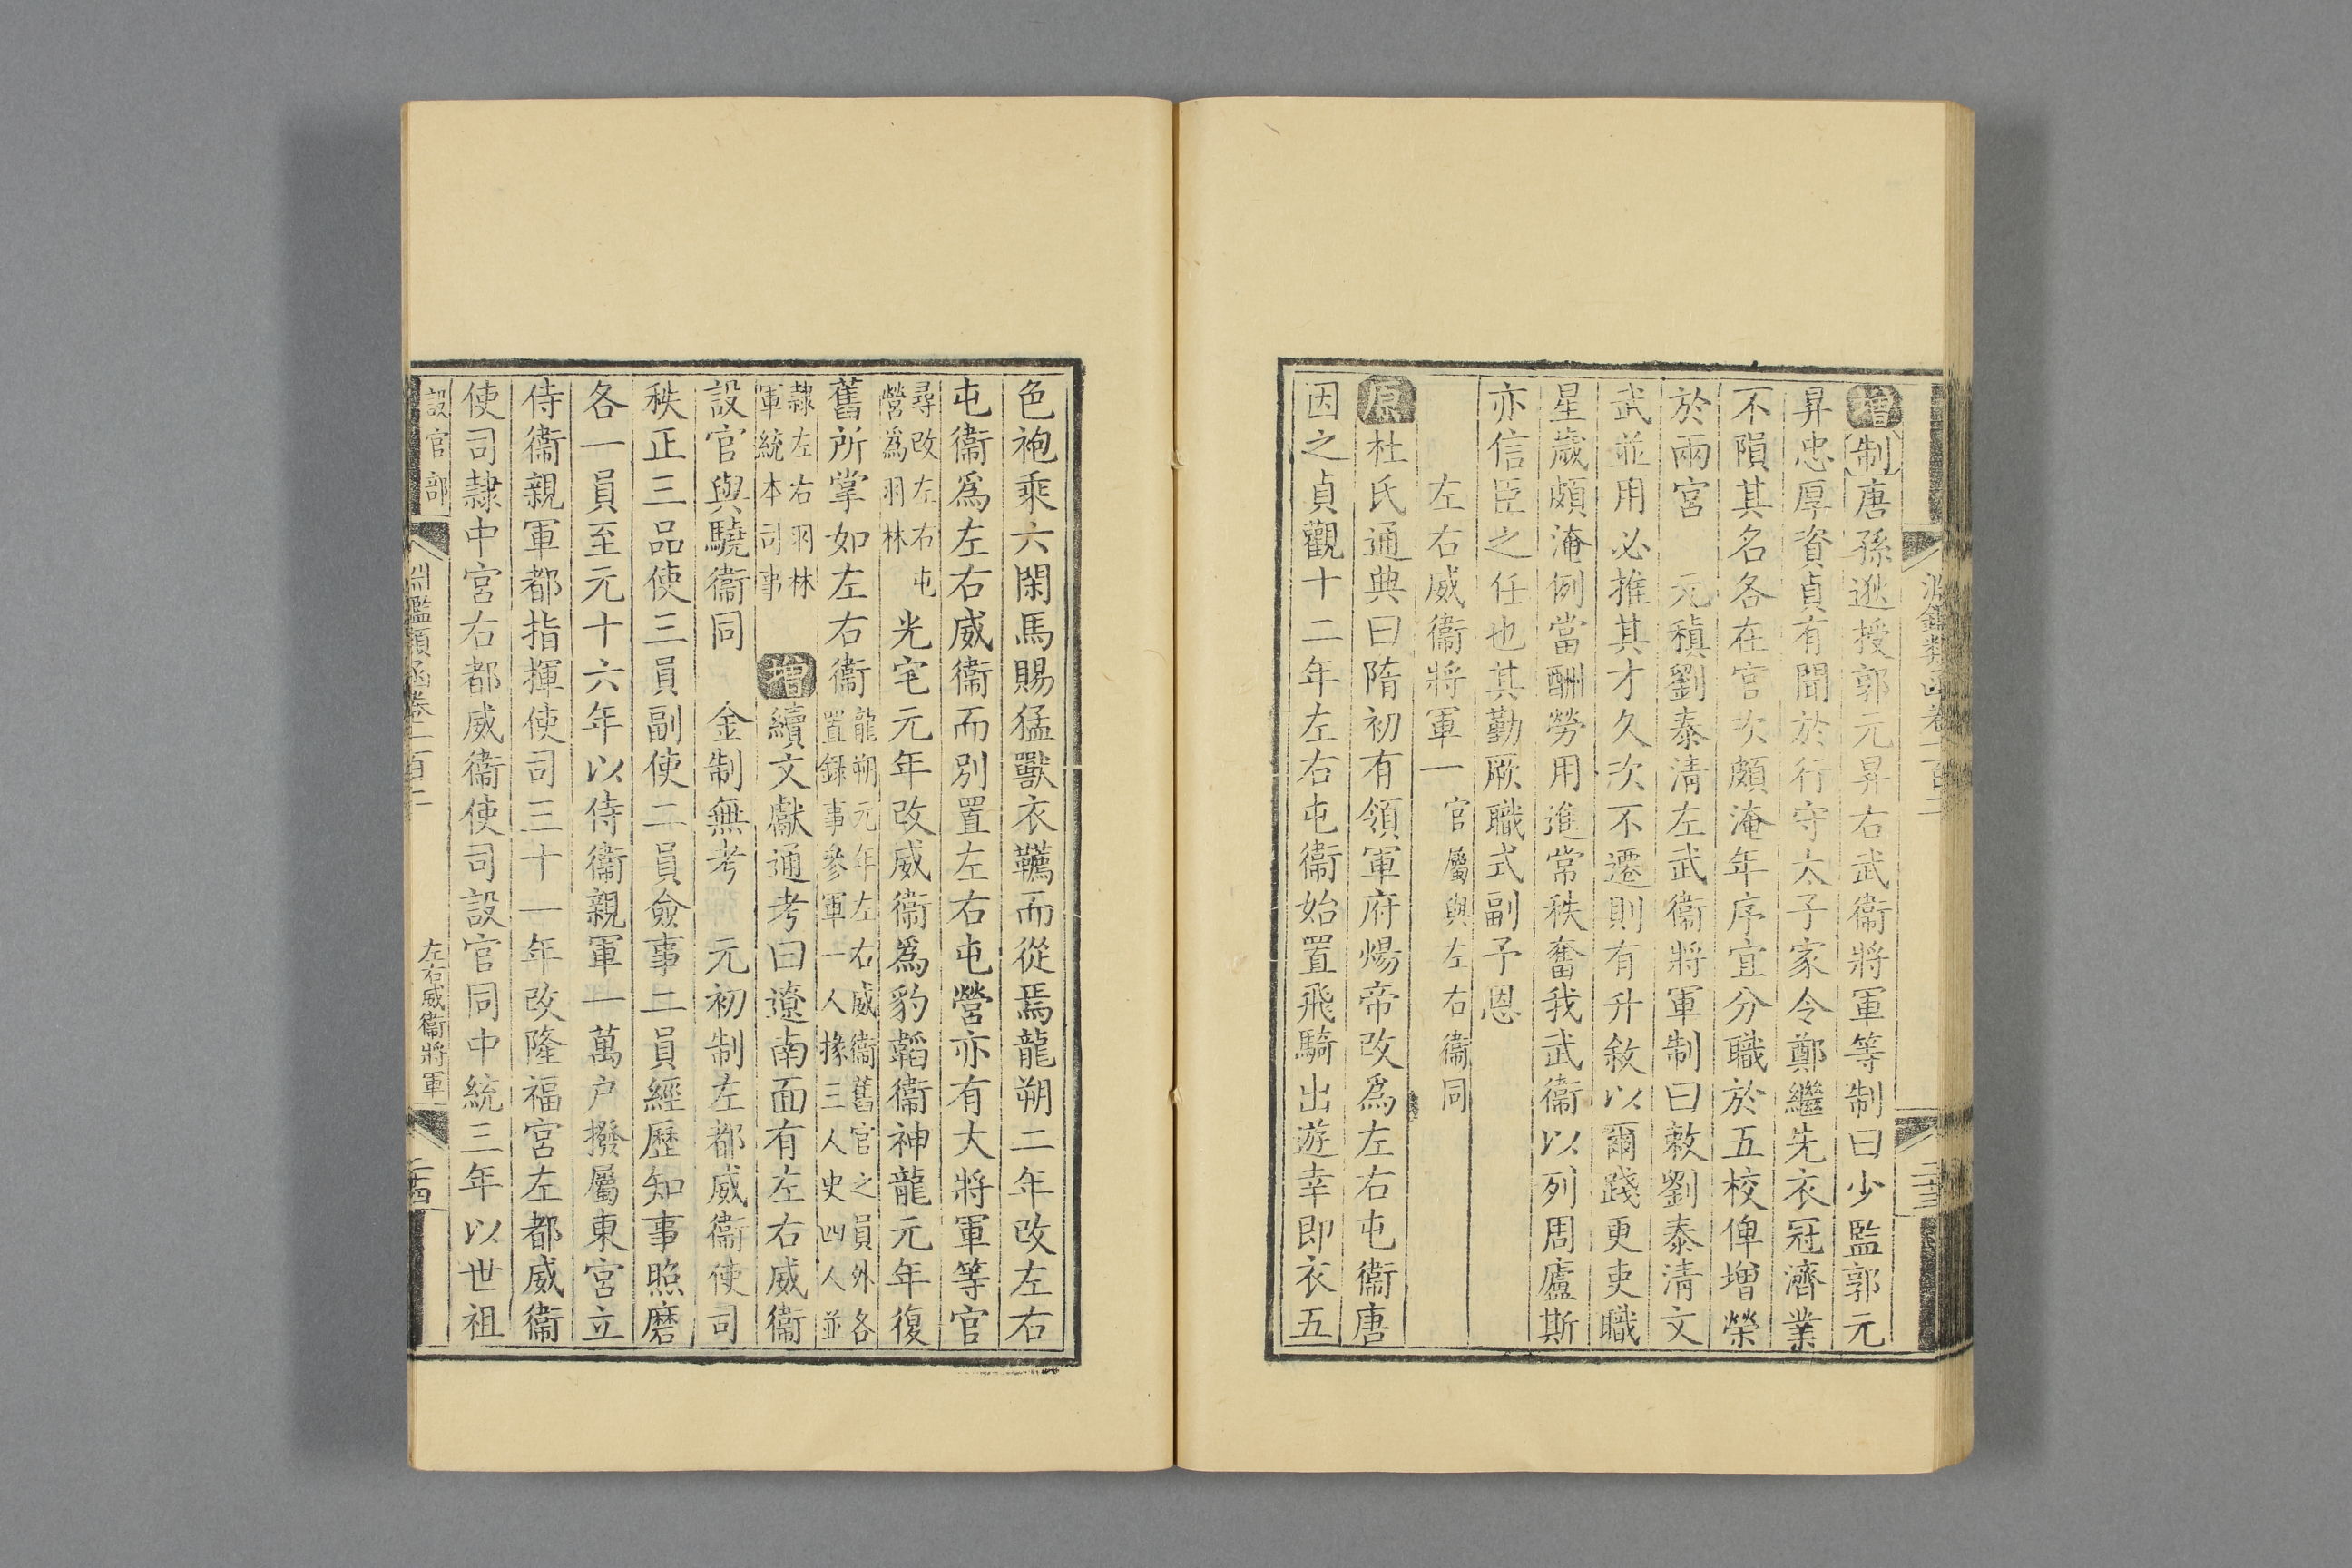 增制唐孫逖授郭元昇右武衞將軍等制曰少監郭元
昇忠厚資貞有聞於行守太子家令鄭繼先衣冠濟業
不隕其名各在宮次頗淹年序宜分職於五校俾增榮
於兩宮　元稹劉泰清左武衞將軍制曰敕劉泰清文
武並用必推其才久次不遷則有升敘以爾踐更吏職
星歲頗淹例當酬勞用進常秩奮我武衞以列周廬斯
亦信臣之任也其勤厥職式副予恩
左右威衞將軍一官屬與左右衞同
原杜氏通典曰隋初有領軍府煬帝改爲左右屯衞唐
因之貞觀十二年左右屯衞始置飛騎出遊幸即衣五
色袍乘六閑馬賜猛獸衣韉而從焉龍朔二年改左右
屯衞爲左右威衞而別置左右屯營亦有大將軍等官
尋改左右屯
營爲羽林
光宅元年改威衞爲豹韜衞神龍元年復
舊所掌如左右衞
龍朔元年左右威衞舊官之員外各
置録事參軍一人掾三人史四人並
隸左右羽林
軍統本司事
增續文獻通考曰遼南面有左右威衞
設官與驍衞同　金制無考　元初制左都威衞使司
秩正三品使三員副使二員僉事二員經歷知事照磨
各一員至元十六年以侍衞親軍一萬戶撥屬東宮立
侍衞親軍都指揮使司三十一年改隆福宮左都威衞
使司隷中宮右都威衞使司設官同中統三年以世祖
設官部
淵鑑類函卷一百二
左右威衞將軍
二十四